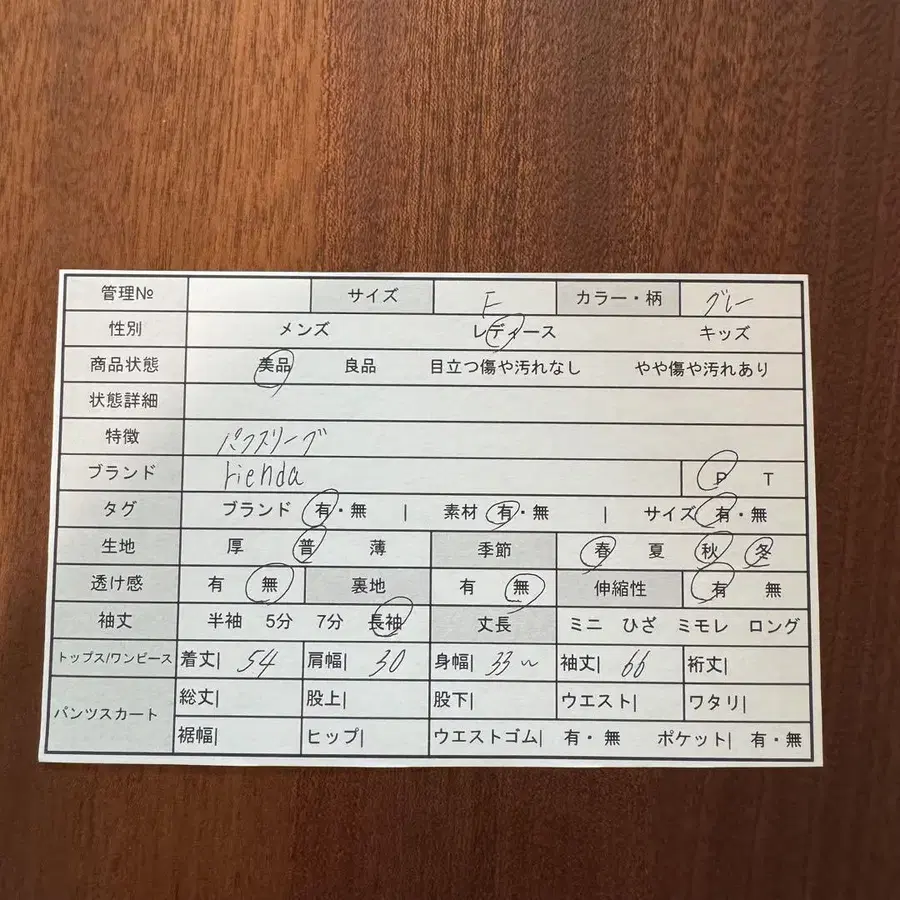 管理№ サイズ F カラー・柄 グレー
性別 メンズ レディース キッズ
商品状態 美品 良品 目立つ傷や汚れなし やや傷や汚れあり
状態詳細
特徴 パフスリーブ
ブランド rienda P T
タグ ブランド 有・無 | 素材 有・無 | サイズ 有・無
生地 厚 普 薄 季節 春 夏 秋 冬
透け感 有 無 裏地 有 無 伸縮性 有 無
袖丈 半袖 5分 7分 長袖 丈長 ミニ ひざ ミモレ ロング
トップス/ワンピース 着丈| 54 肩幅| 30 身幅| 33〜 袖丈| 66 裄丈|
パンツスカート 総丈| 股上| 股下| ウエスト| ワタリ|
裾幅| ヒップ| ウエストゴム| 有・無 ポケット| 有・無